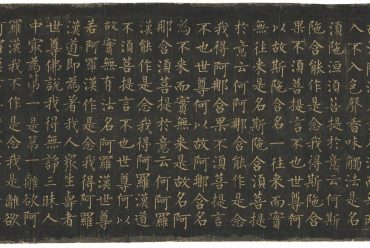 入不入色聲香味觸法是名
須陀洹須菩提於意云何斯
陀含能作是念我得斯陀含
果不須菩提言不也世尊何
以故斯陀含名一往來而實
無往來是名斯陀含須菩提
於意云何阿那含能作是念
我得阿那含果不須菩提言
不也世尊何以故阿那含名
為不來而實無來是故名阿
那含須菩提於意云何阿羅
漢能作是念我得阿羅漢道
不須菩提言不也世尊何以
故實無有法名阿羅漢世尊
若阿羅漢作是念我得阿羅
漢道即為著我人眾生壽者
世尊佛說我得無諍三昧人
中最為第一是第一離欲阿
羅漢我不作是念我是離欲